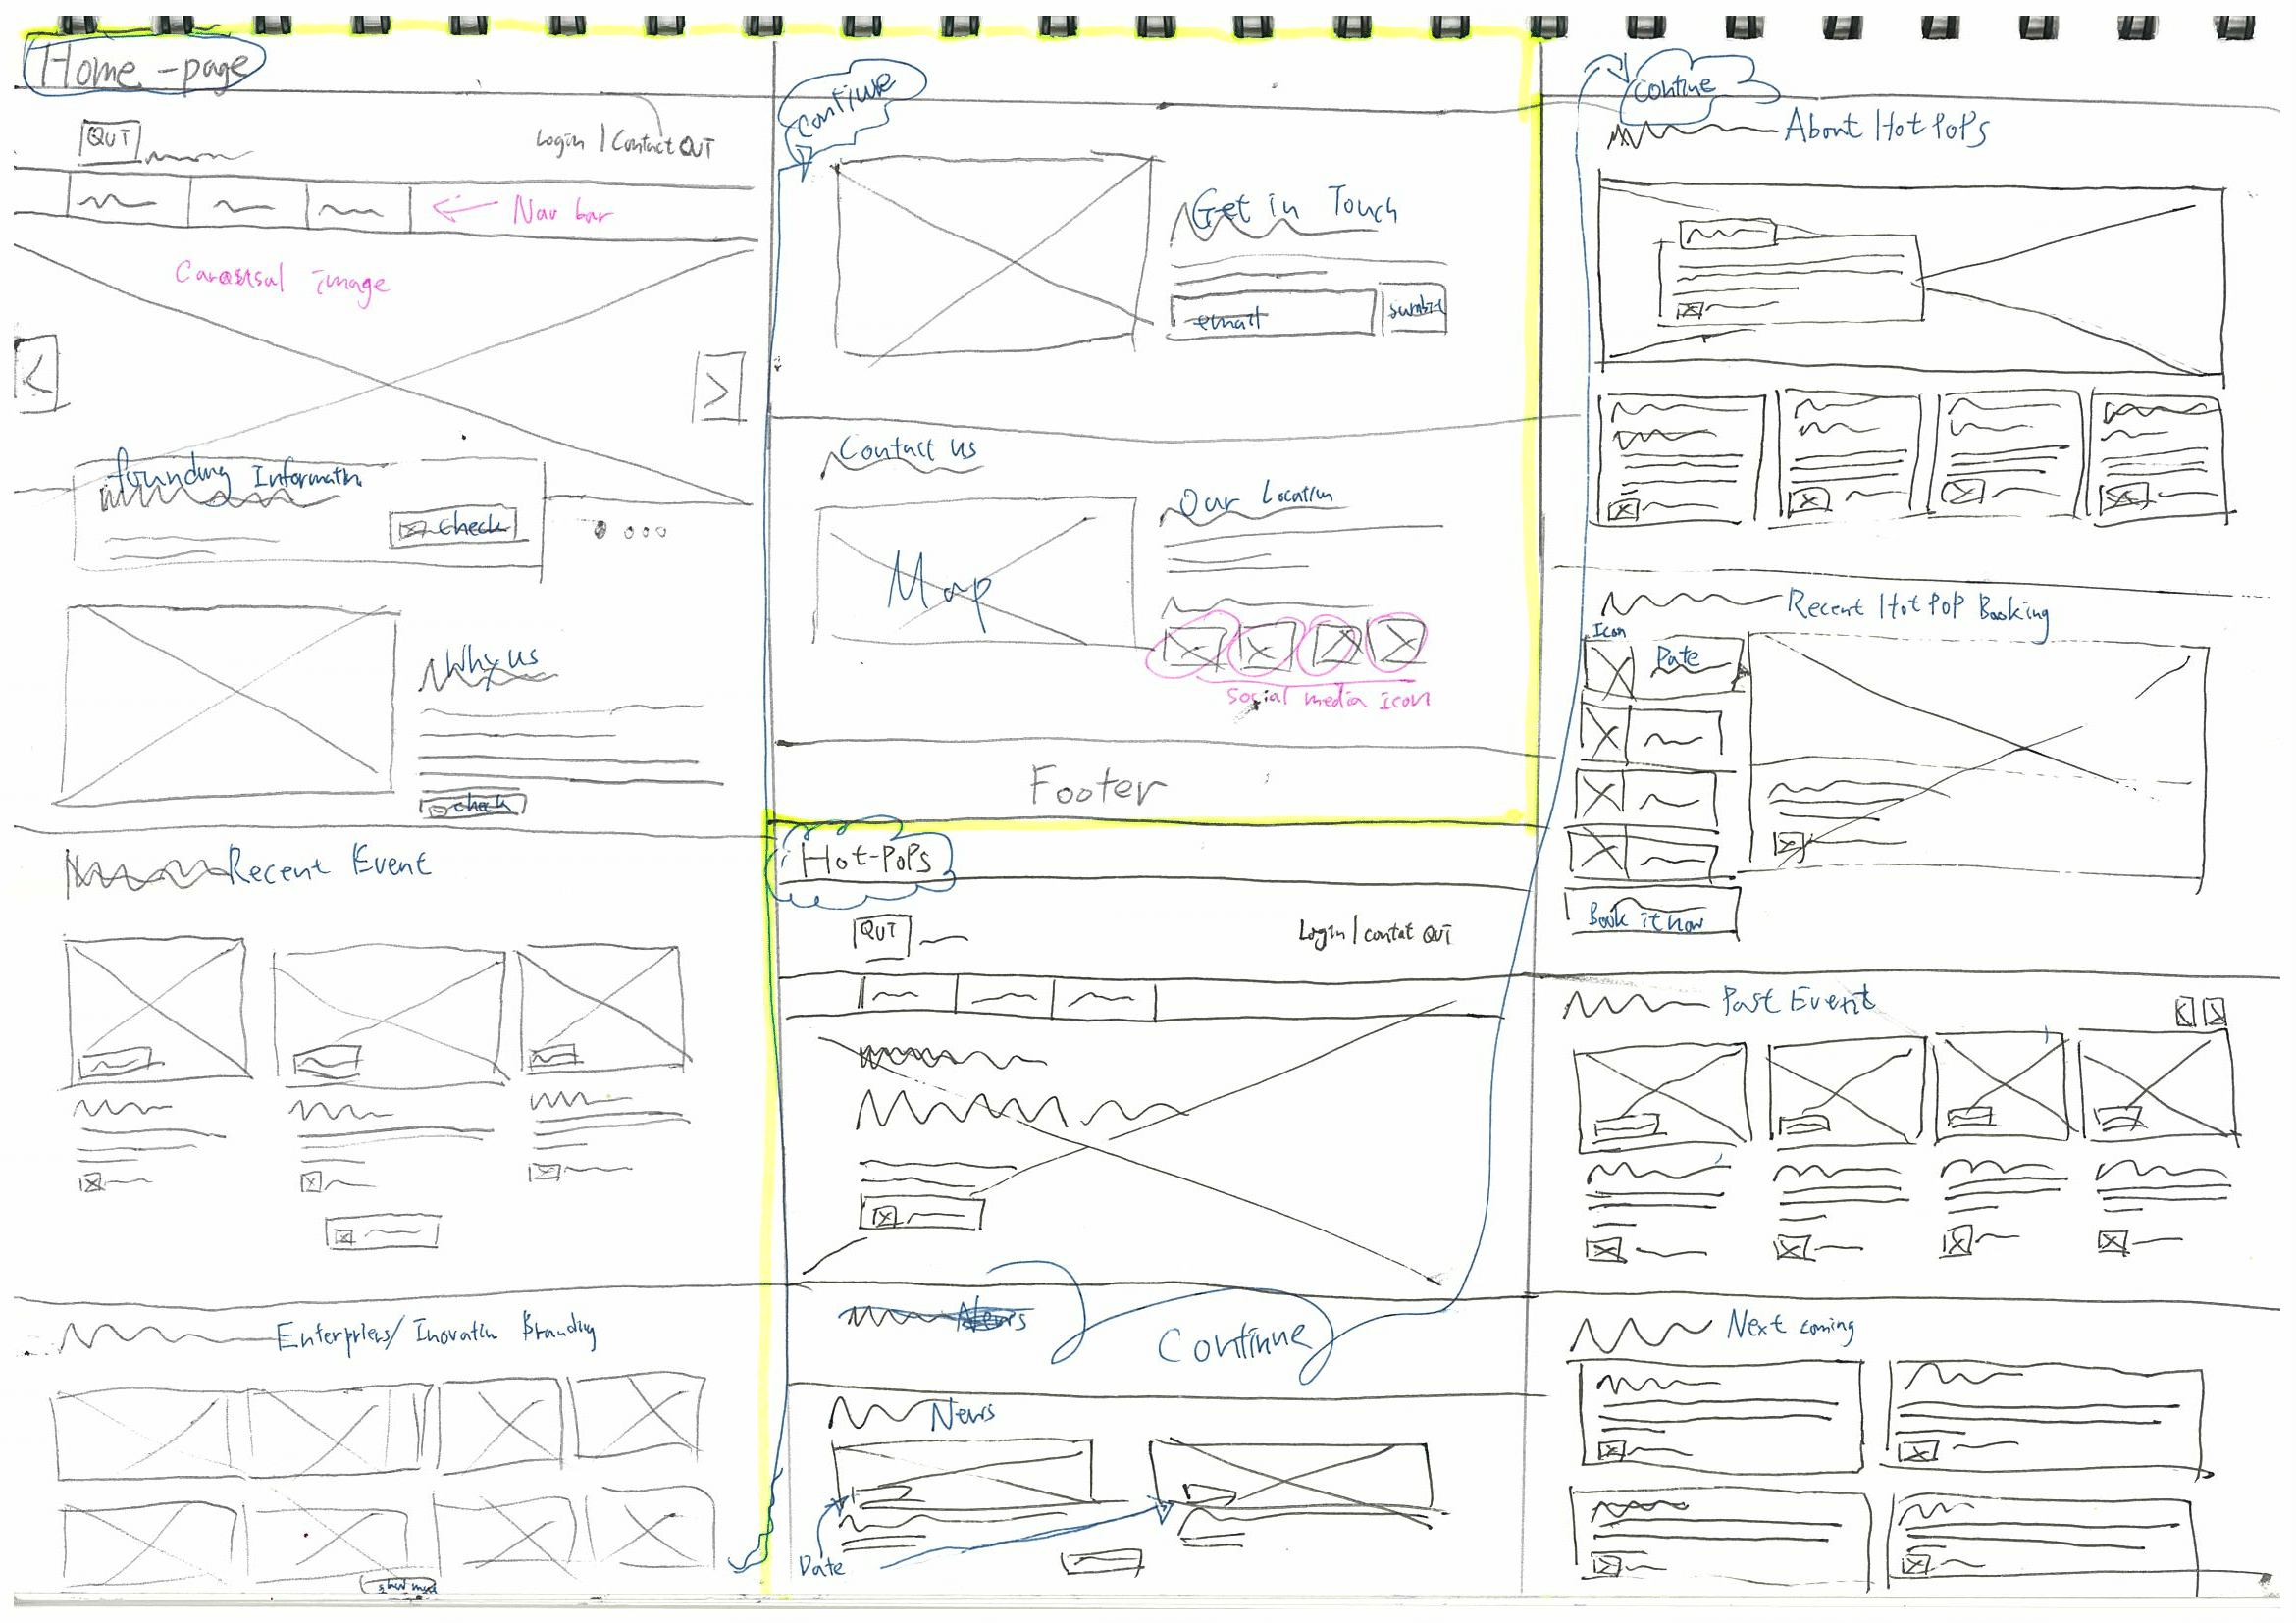 Home-page
QUT
Login | Contact QUT
Nav bar
image
Information
check
Why us
check
Recent Event
Branding
Continue
Get in Touch
email
Contact us
Our Location
Map
social media icon
Footer
Hot-PoPs
QUT
Login | contat QUT
News
Continue
News
Date
Contine
About Hot PoPs
Recent Hot PoP Booking
Icon
Date
Book it now
Past Event
Next coming